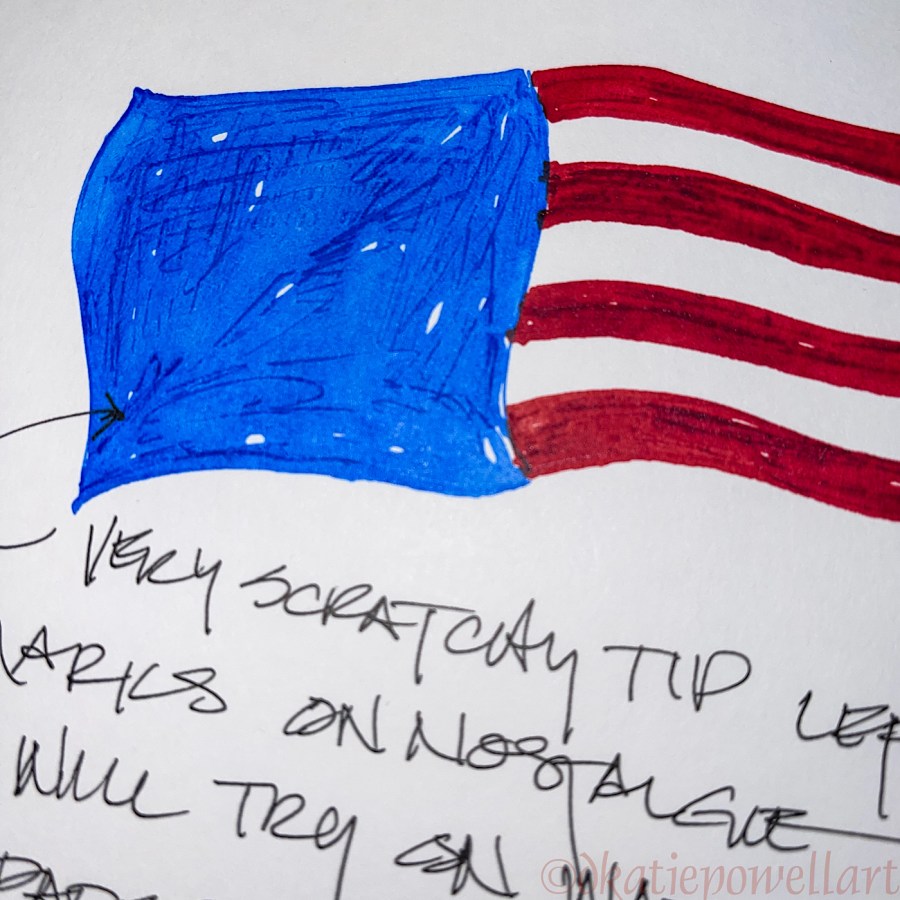 VERY SCRATCHY TIP LEF
MARKS ON NOSTALGIE
WILL TRY ON
©katiepowellart